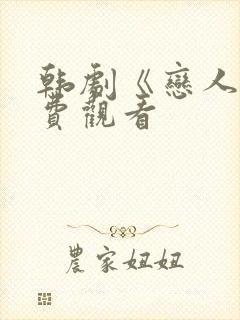 韩劇《戀人
費觀看
農家妞妞